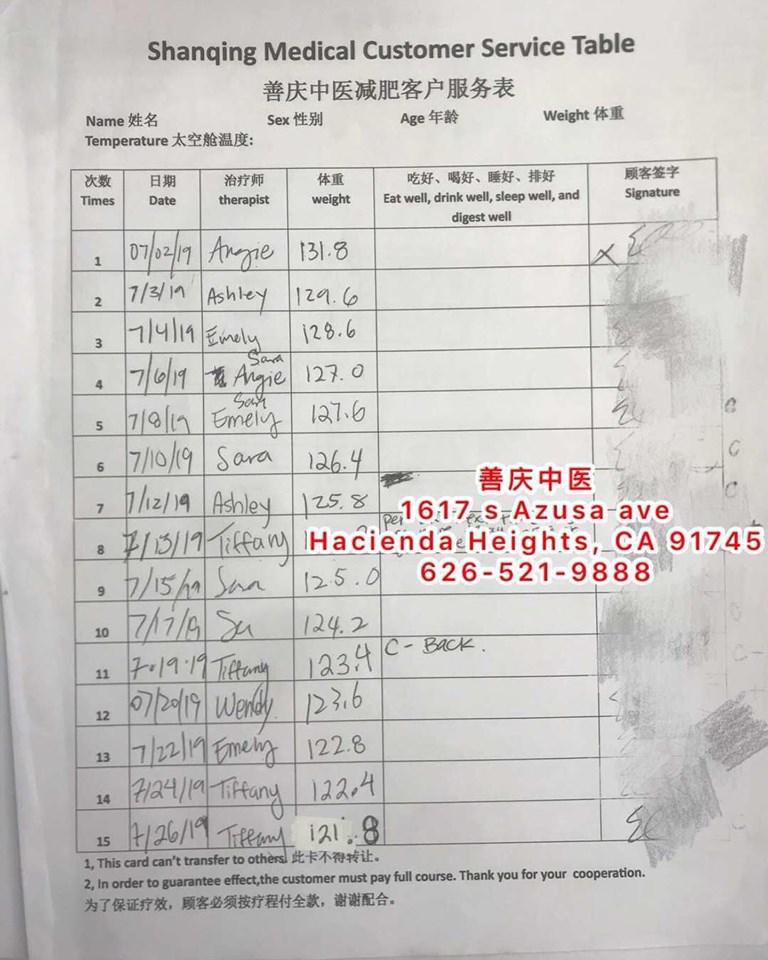 Shanqing Medical Customer Service Table
善庆中医减肥客户服务表
Name 姓名 Sex 性别 Age 年龄 Weight 体重
Temperature 太空舱温度:
次数 日期 治疗师 体重 吃好、喝好、睡好、排好 顾客签字
Times Date therapist weight Eat well, drink well, sleep well, and Signature
digest well
1 07/02/19 Angie 131.8 X
2 7/3/19 Ashley 129.6
3 7/4/19 Emely 128.6
Sara
4 7/6/19 Angie 127.0
Sara
5 7/8/19 Emely 127.6
6 7/10/19 Sara 126.4
善庆中医
7 7/12/19 Ashley 125.8
1617 s Azusa ave
8 7/13/19 Tiffany
Hacienda Heights, CA 91745
626-521-9888
9 7/15/19 125.0
10 7/17/19 124.2
C- BACK.
11 7.19.19 Tiffany 123.4
12 07/20/19 Wendy 123.6
13 7/22/19 Emely 122.8
14 7/24/19 Tiffany 122.4
15 7/26/19 Tiffany 121.8
1, This card can't transfer to others. 此卡不得转让。
2, In order to guarantee effect,the customer must pay full course. Thank you for your cooperation.
为了保证疗效，顾客必须按疗程付全款，谢谢配合。